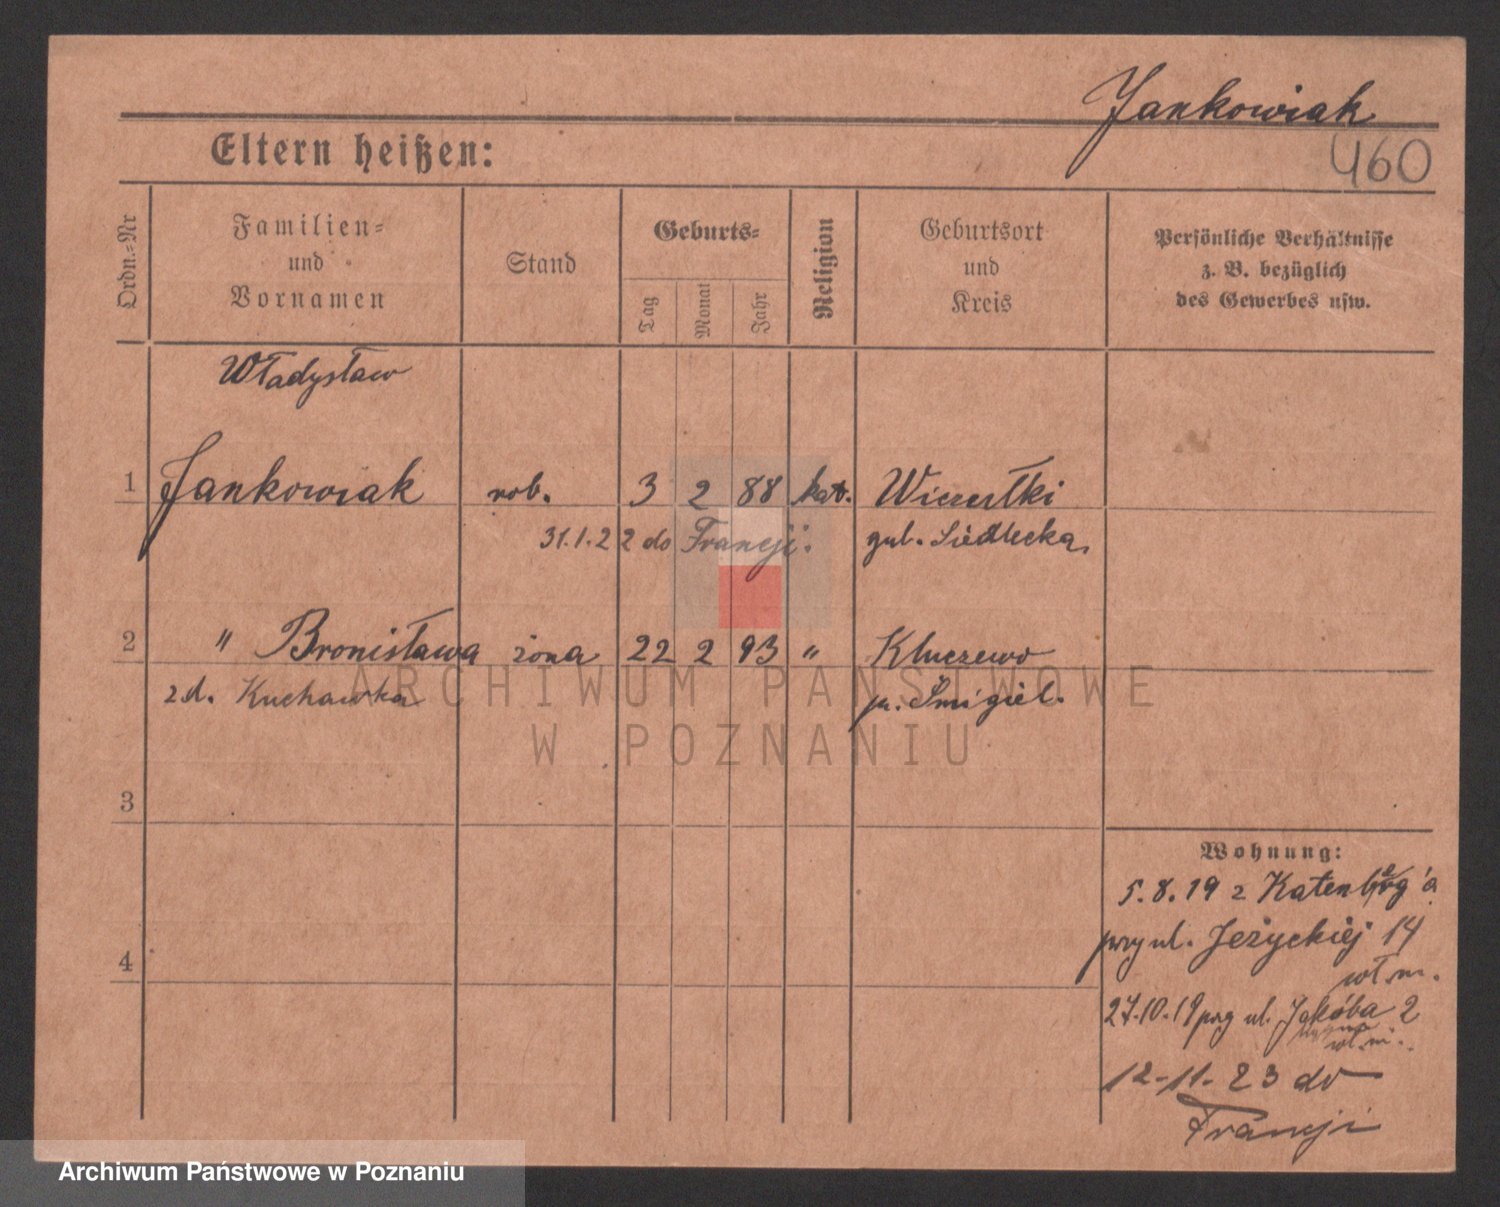 Jankowiak
460
Eltern heißen:
Ordn.=Nr
Familien=
und
Vornamen
Stand
Geburts=
Tag
Monat
Jahr
Religion
Geburtsort
und
Kreis
Persönliche Verhältnisse
z. B. bezüglich
des Gewerbes usw.
Władysław
1 Jankowiak rob. 3 2 88 kat.
31.1.22 do Francji. gub. Siedlecka
2 " Bronisława żona 22 2 93 " Kluczewo
zd. Kuchawka p. Śmigiel.
ARCHIWUM PAŃSTWOWE
W POZNANIU
3
Wohnung:
5.8.19 z
przy ul. Jeżyckiej 14
4
wł. m.
27.10.19 prz ul. Jakóba 2
wł. m.
12-11-23 do
Francji
Archiwum Państwowe w Poznaniu